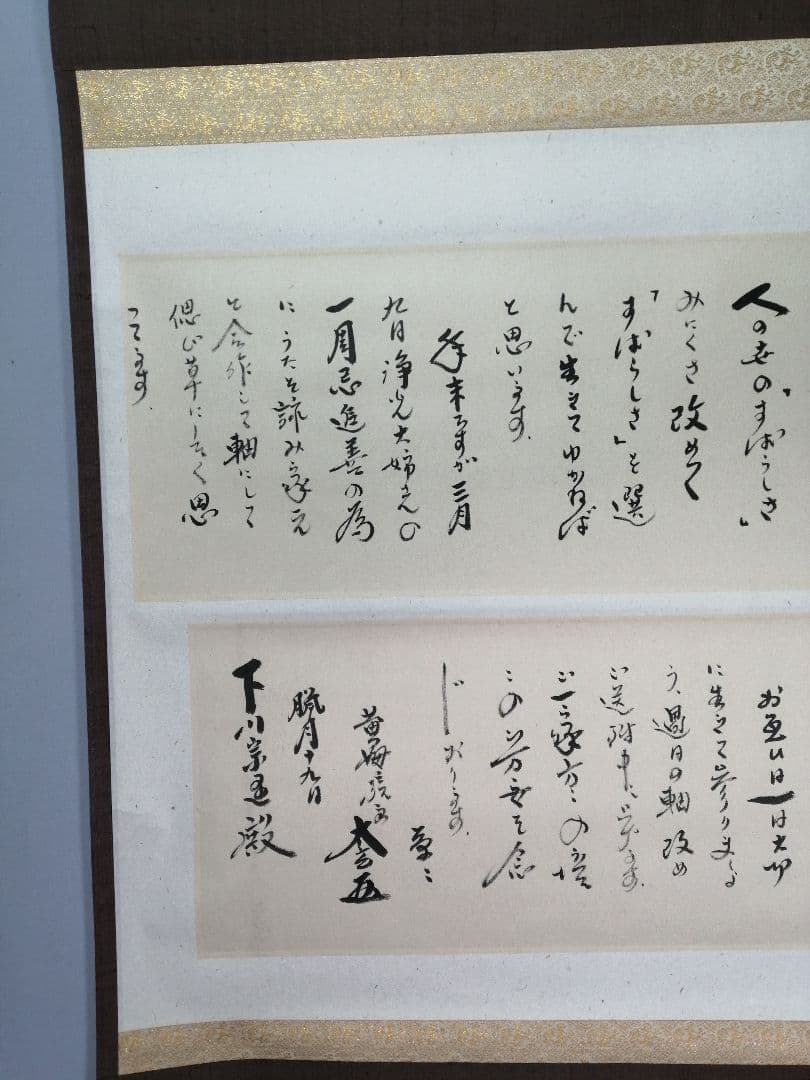 人の世の「すばらしさ」
みにくさ改めて
「すばらしさ」を選
んで生きてゆかねば
と思います。
年末ですが三月
九日浄光大姉さんの
一周忌追善の為
にうたを詠み
と合作して軸にして
偲び草にしたく思
って
お互い日一日大切
に生きて参りましょ
う、過日の軸改め
ご送附申し上げます。
ご一家皆々の
この御芳
じております。
草々
臘月十九日
下川宗 殿